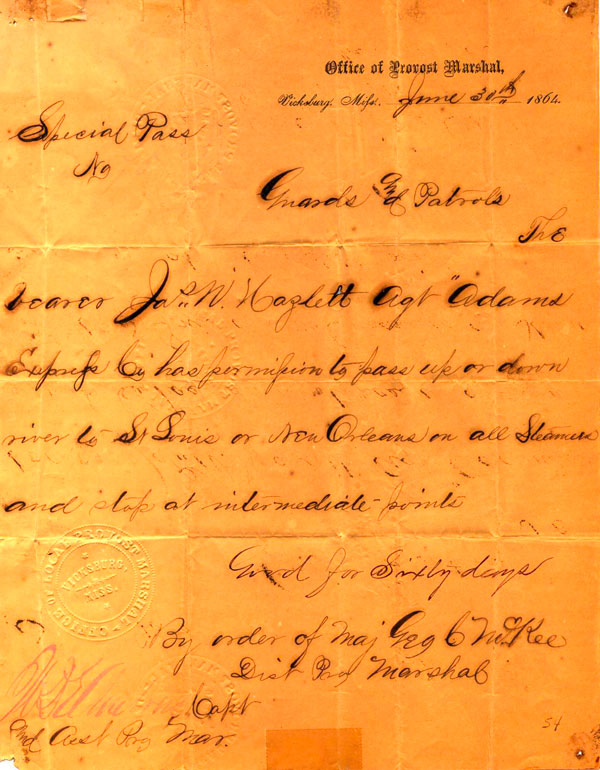 Office of Provost Marshal,
Vicksburg, Miss. June 30th 1864.
Special Pass
No
Guards and Patrols
The
bearer Jas. W. Hazlett Agt "Adams
Express Co has permission to pass up or down
river to St Louis or New Orleans on all Steamers
and stop at intermediate points
Good for Sixty days
By order of Maj Geo C McKee
Dist Pro Marshal
Capt
and Asst Pro Mar.
OFFICE OF LOCAL PROVOST MARSHAL
VICKSBURG,
MISS.
54